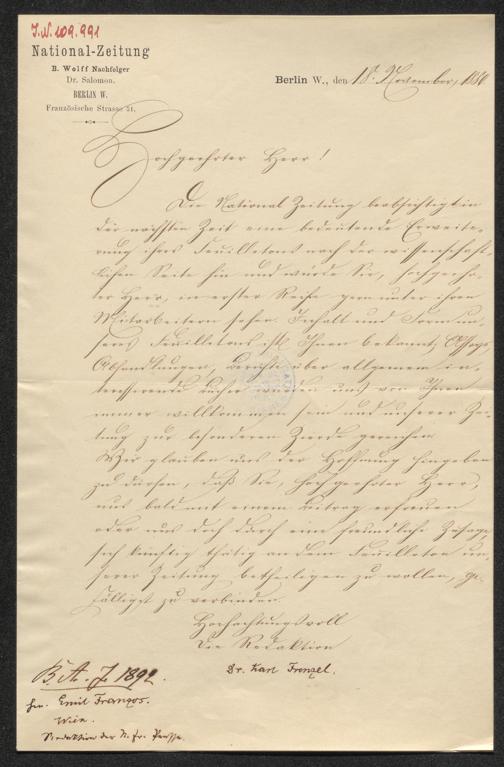 I.N. 109.991
National-Zeitung
B. Wolff Nachfolger
Dr. Salomon.
BERLIN W.
Französische Strasse 51.
Berlin W., den 18. November, 1886
Hochgeehrter Herr!
Die National Zeitung beabsichtigt in
der nächsten Zeit eine bedeutende Erweite-
rung ihres Feuilletons nach der wissenschaft-
lichen Seite hin und würde Sie, hochgeehr-
ter Herr, in erster Reihe gern unter ihren
Mitarbeitern sehen. Inhalt und Form un-
seres Feuilletons ist Ihnen bekannt; Essays,
Abhandlungen, Berichte über allgemein in-
teressirende Bücher würden uns von Ihnen
immer willkommen sein und unserer Zei-
tung zur besonderen Zierde gereichen.
Wir glauben uns der Hoffnung hingeben
zu dürfen, daß Sie, hochgeehrter Herr,
uns bald mit einem Beitrag erfreuen
oder uns doch durch eine freundliche Zusage,
sich künftig thätig an dem Feuilleton un-
serer Zeitung betheiligen zu wollen, ge-
fälligst zu verbinden.
Hochachtungsvoll
Die Redaktion
Dr. Karl Frenzel.
B. A. J. 1892.
Hrn. Emil Franzos.
Wien.
Redaktion der N. Fr. Presse.